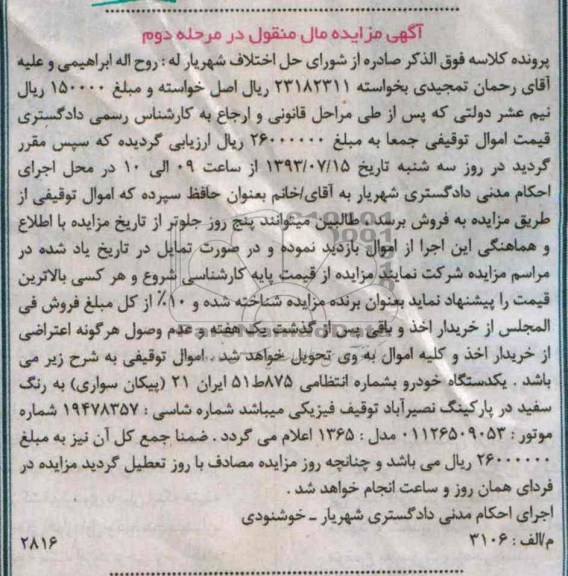 آگهی مزایده مال منقول در مرحله دوم
پرونده کلاسه فوق الذکر صادره از شورای حل اختلاف شهریار له : روح اله ابراهیمی و علیه
آقای رحمان تمجیدی بخواسته ۲۳۱۸۲۳۱۱ ریال اصل خواسته و مبلغ ۱۵۰۰۰۰ ریال
نیم عشر دولتی که پس از طی مراحل قانونی و ارجاع به کارشناس رسمی دادگستری
قیمت اموال توقیفی جمعا به مبلغ ۲۶۰۰۰۰۰۰ ریال ارزیابی گردیده که سپس مقرر
گردید در روز سه شنبه تاریخ ۱۳۹۳/۰۷/۱۵ از ساعت ۰۹ الی ۱۰ در محل اجرای
احکام مدنی دادگستری شهریار به آقای/خانم بعنوان حافظ سپرده که اموال توقیفی از
طریق مزایده به فروش برسد . طالبین میتوانند پنج روز جلوتر از تاریخ مزایده با اطلاع
و هماهنگی این اجرا از اموال بازدید نموده و در صورت تمایل در تاریخ یاد شده در
مراسم مزایده شرکت نمایند مزایده از قیمت پایه کارشناسی شروع و هر کسی بالاترین
قیمت را پیشنهاد نماید بعنوان برنده مزایده شناخته شده و ۱۰٪ از کل مبلغ فروش فی
المجلس از خریدار اخذ و باقی پس از گذشت یک هفته و عدم وصول هرگونه اعتراضی
از خریدار اخذ و کلیه اموال به وی تحویل خواهد شد . اموال توقیفی به شرح زیر می
باشد . یکدستگاه خودرو بشماره انتظامی ۸۷۵ط۵۱ ایران ۲۱ (پیکان سواری) به رنگ
سفید در پارکینگ نصیرآباد توقیف فیزیکی میباشد شماره شاسی : ۱۹۴۷۸۳۵۷ شماره
موتور : ۰۱۱۲۶۵۰۹۰۵۳ مدل : ۱۳۶۵ اعلام می گردد . ضمنا جمع کل آن نیز به مبلغ
۲۶۰۰۰۰۰۰ ریال می باشد و چنانچه روز مزایده مصادف با روز تعطیل گردید مزایده در
فردای همان روز و ساعت انجام خواهد شد .
اجرای احکام مدنی دادگستری شهریار ـ خوشنودی
م/الف : ۳۱۰۶ ۲۸۱۶